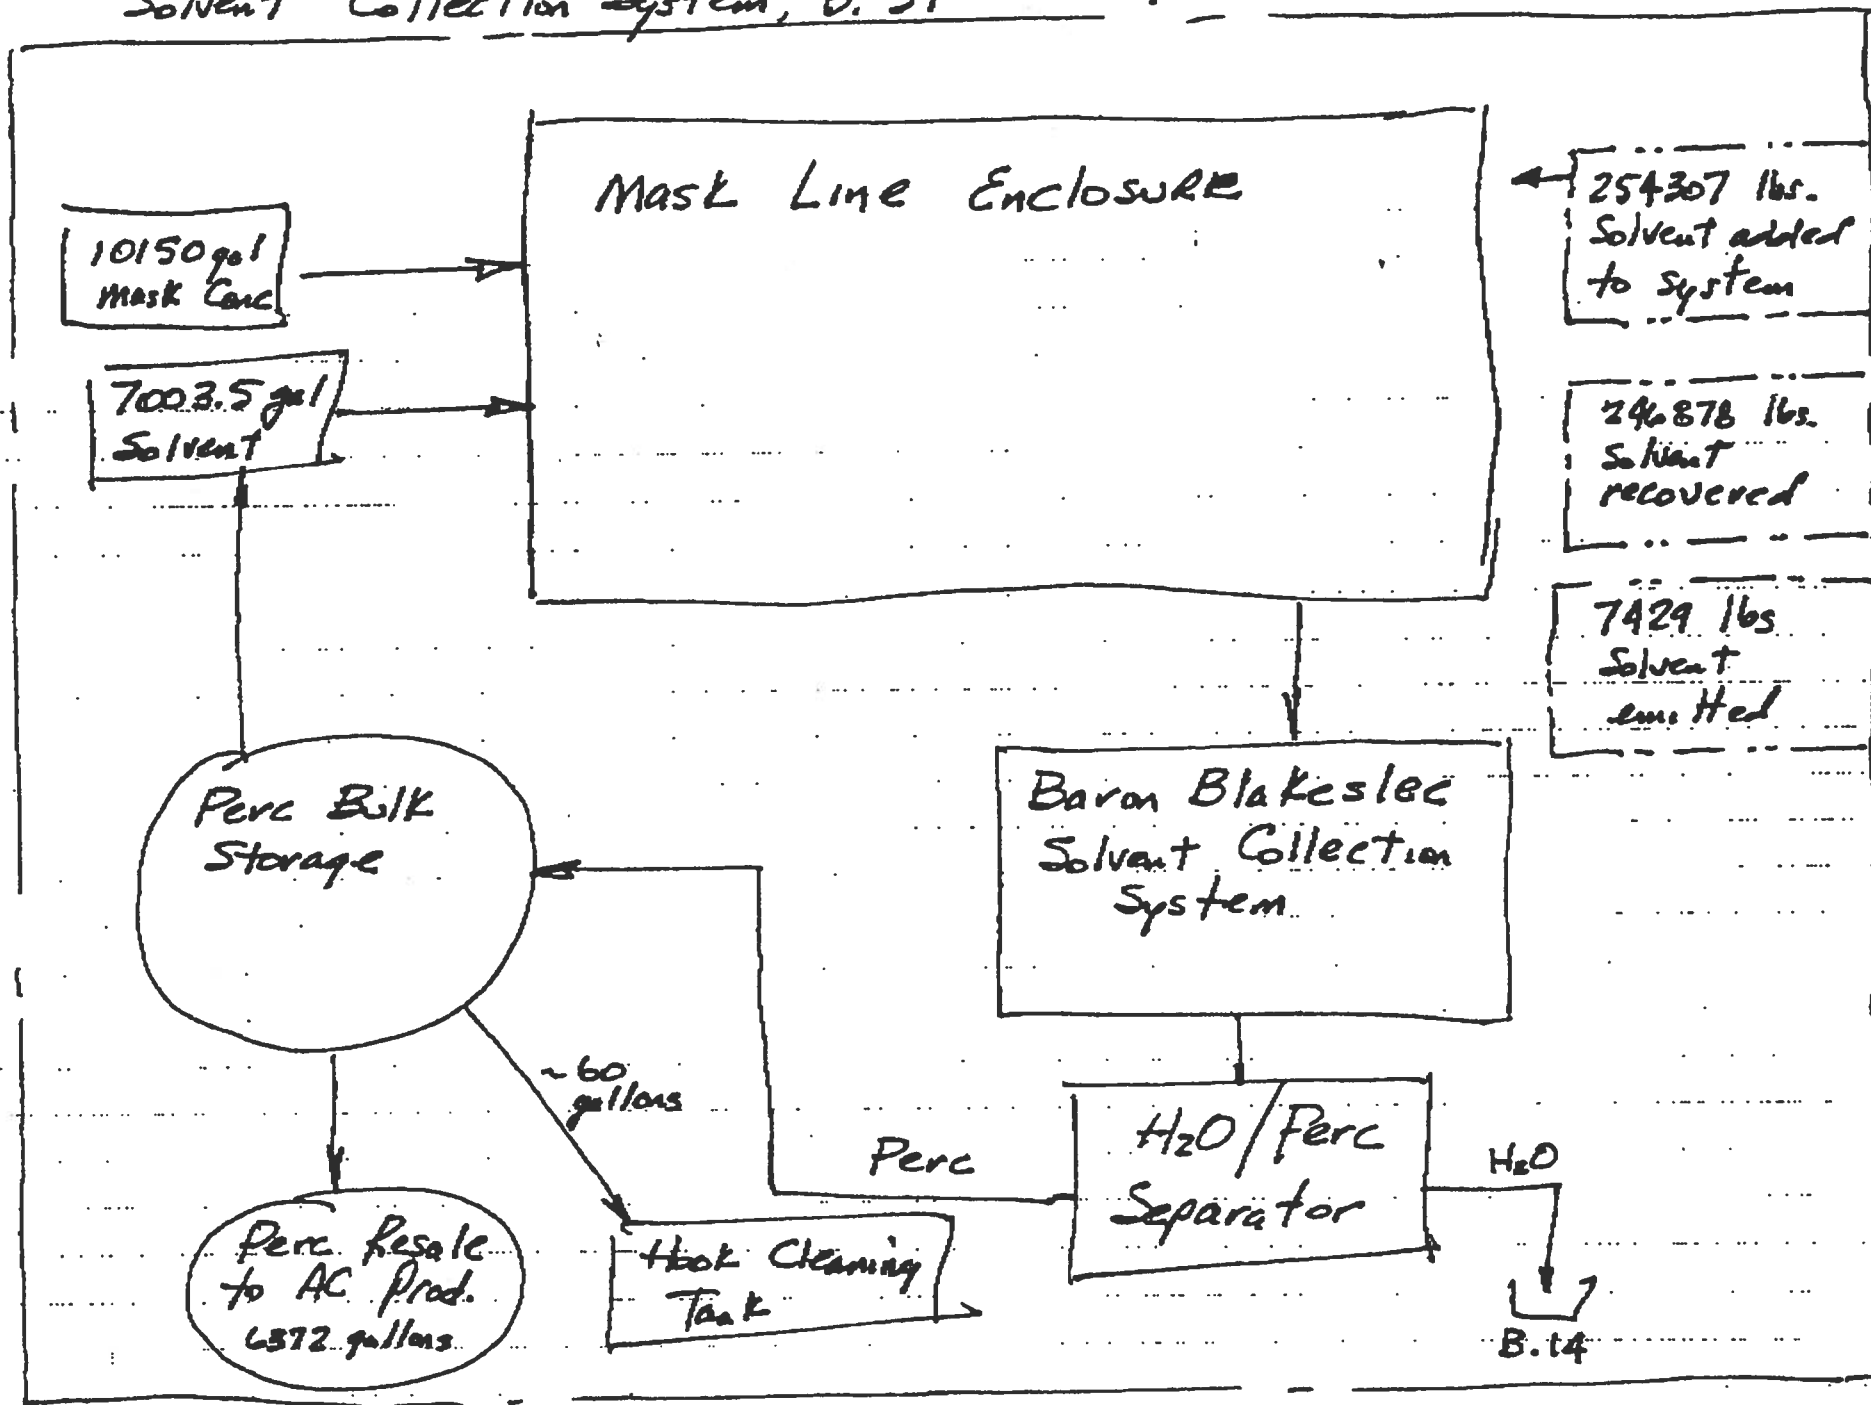 Solvent Collection System, B. 51
Mask Line Enclosure
10150 gal
Mask Conc
7003.5 gal
Solvent
254307 lbs.
Solvent added
to system
246878 lbs.
Solvent
recovered
7429 lbs
Solvent
emitted
Perc Bulk
Storage
Baron Blakeslee
Solvent Collection
System
~60
gallons
H2O/Perc
Separator
Perc
H2O
Perc Resale
to AC Prod.
6372 gallons
Hook Cleaning
Tank
B.14